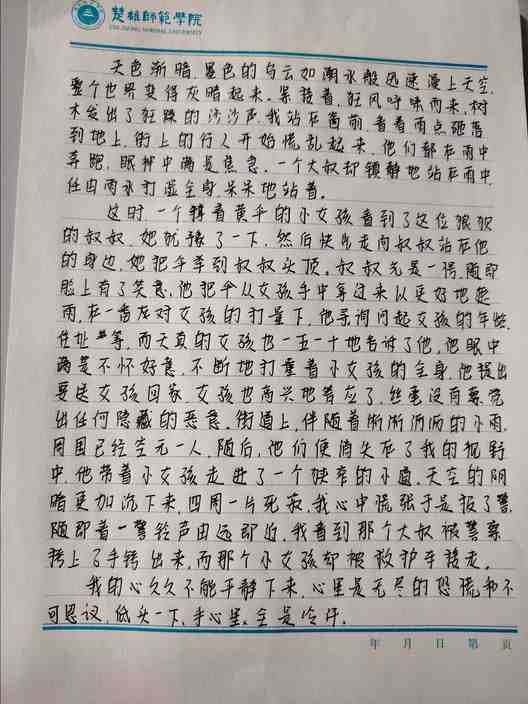 楚雄師範學院
CHUXIONG NORMAL UNIVERSITY
天色渐暗,墨色的乌云如潮水般迅速漫上天空,
整个世界变得灰暗起来。紧接着,狂风呼啸而来,树
木发出了狂躁的沙沙声,我站在窗前,看着雨点砸落
到地上,街上的行人开始慌乱起来,他们都在雨中
奔跑,眼神中满是焦急。一个大叔却镇静地站在雨中,
任由雨水打湿全身,呆呆地站着。
这时,一个撑着黄伞的小女孩看到了这位狼狈
的叔叔,她犹豫了一下,然后快步走向叔叔站在他
的身边,她把伞举到叔叔头顶。叔叔先是一愣,随即
脸上有了笑意,他把伞从女孩手中拿过来以更好地避
雨,在一番左对女孩的打量下,他寻询问起女孩的年龄、
住址等,而天真的女孩也一五一十地告诉了他,他眼中
满是不怀好意,不断地打量着小女孩的全身,他提出
要送女孩回家,女孩也高兴地答应了,丝毫没有察觉
出任何隐藏的恶意。街道上,伴随着淅淅沥沥的小雨,
周围已经空无一人,随后,他们便消失在了我的视野
中,他带着小女孩走进了一个狭窄的小道。天空的阴
暗更加沉下来,四周一片死寂,我心中慌张于是报了警,
随即着一警铃声由远即近,我看到那个大叔被警察
拷上了手铐出来,而那个小女孩却被救护车接走。
我的心久久不能平静下来,心里是无尽的恐慌和不
可思议,低头一下,手心里,全是冷汗。
年 月 日 第 页